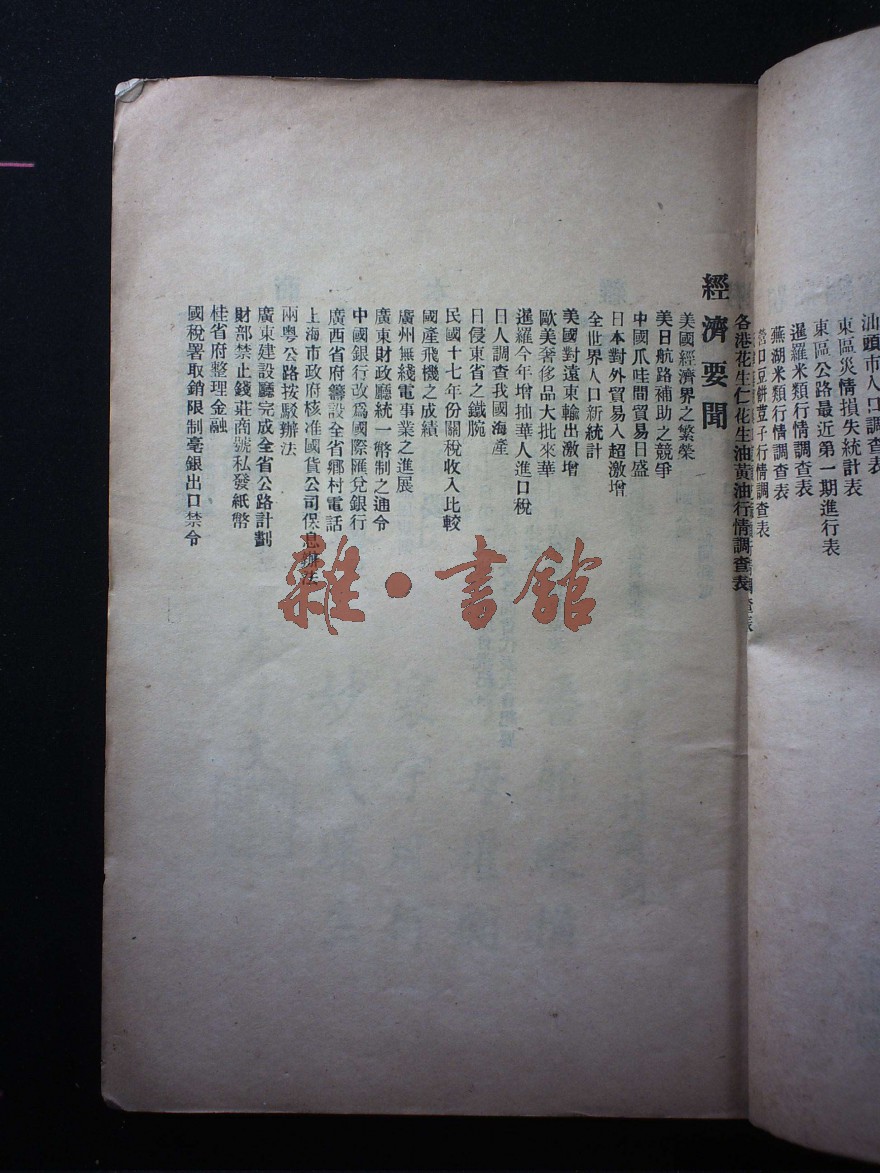 汕頭市人口調查表
東區災情損失統計表
東區公路最近第一期進行表
暹羅米類行情調查表
蕪湖米類行情調查表
營口豆餅荳子行情調查表
各港花生仁花生油黃油行情調查表
經濟要聞
美國經濟界之繁榮
美日航路補助之競爭
中國爪哇間貿易日盛
日本對外貿易入超激增
全世界人口新統計
美國對遠東輸出激增
歐美奢侈品大批來華
暹羅今年增抽華人進口稅
日人調查我國海產
日侵東省之鐵腕
民國十七年份關稅收入比較
國產飛機之成績
廣州無綫電事業之進展
廣東財政廳統一幣制之通令
中國銀行改爲國際匯兌銀行
廣西省府籌設全省鄉村電話
上海市政府核准國貨公司保息辦法
兩粵公路按駁辦法
廣東建設廳完成全省公路計劃
財部禁止錢莊商號私發紙幣
桂省府整理金融
國稅署取銷限制毫銀出口禁令
雜·書館